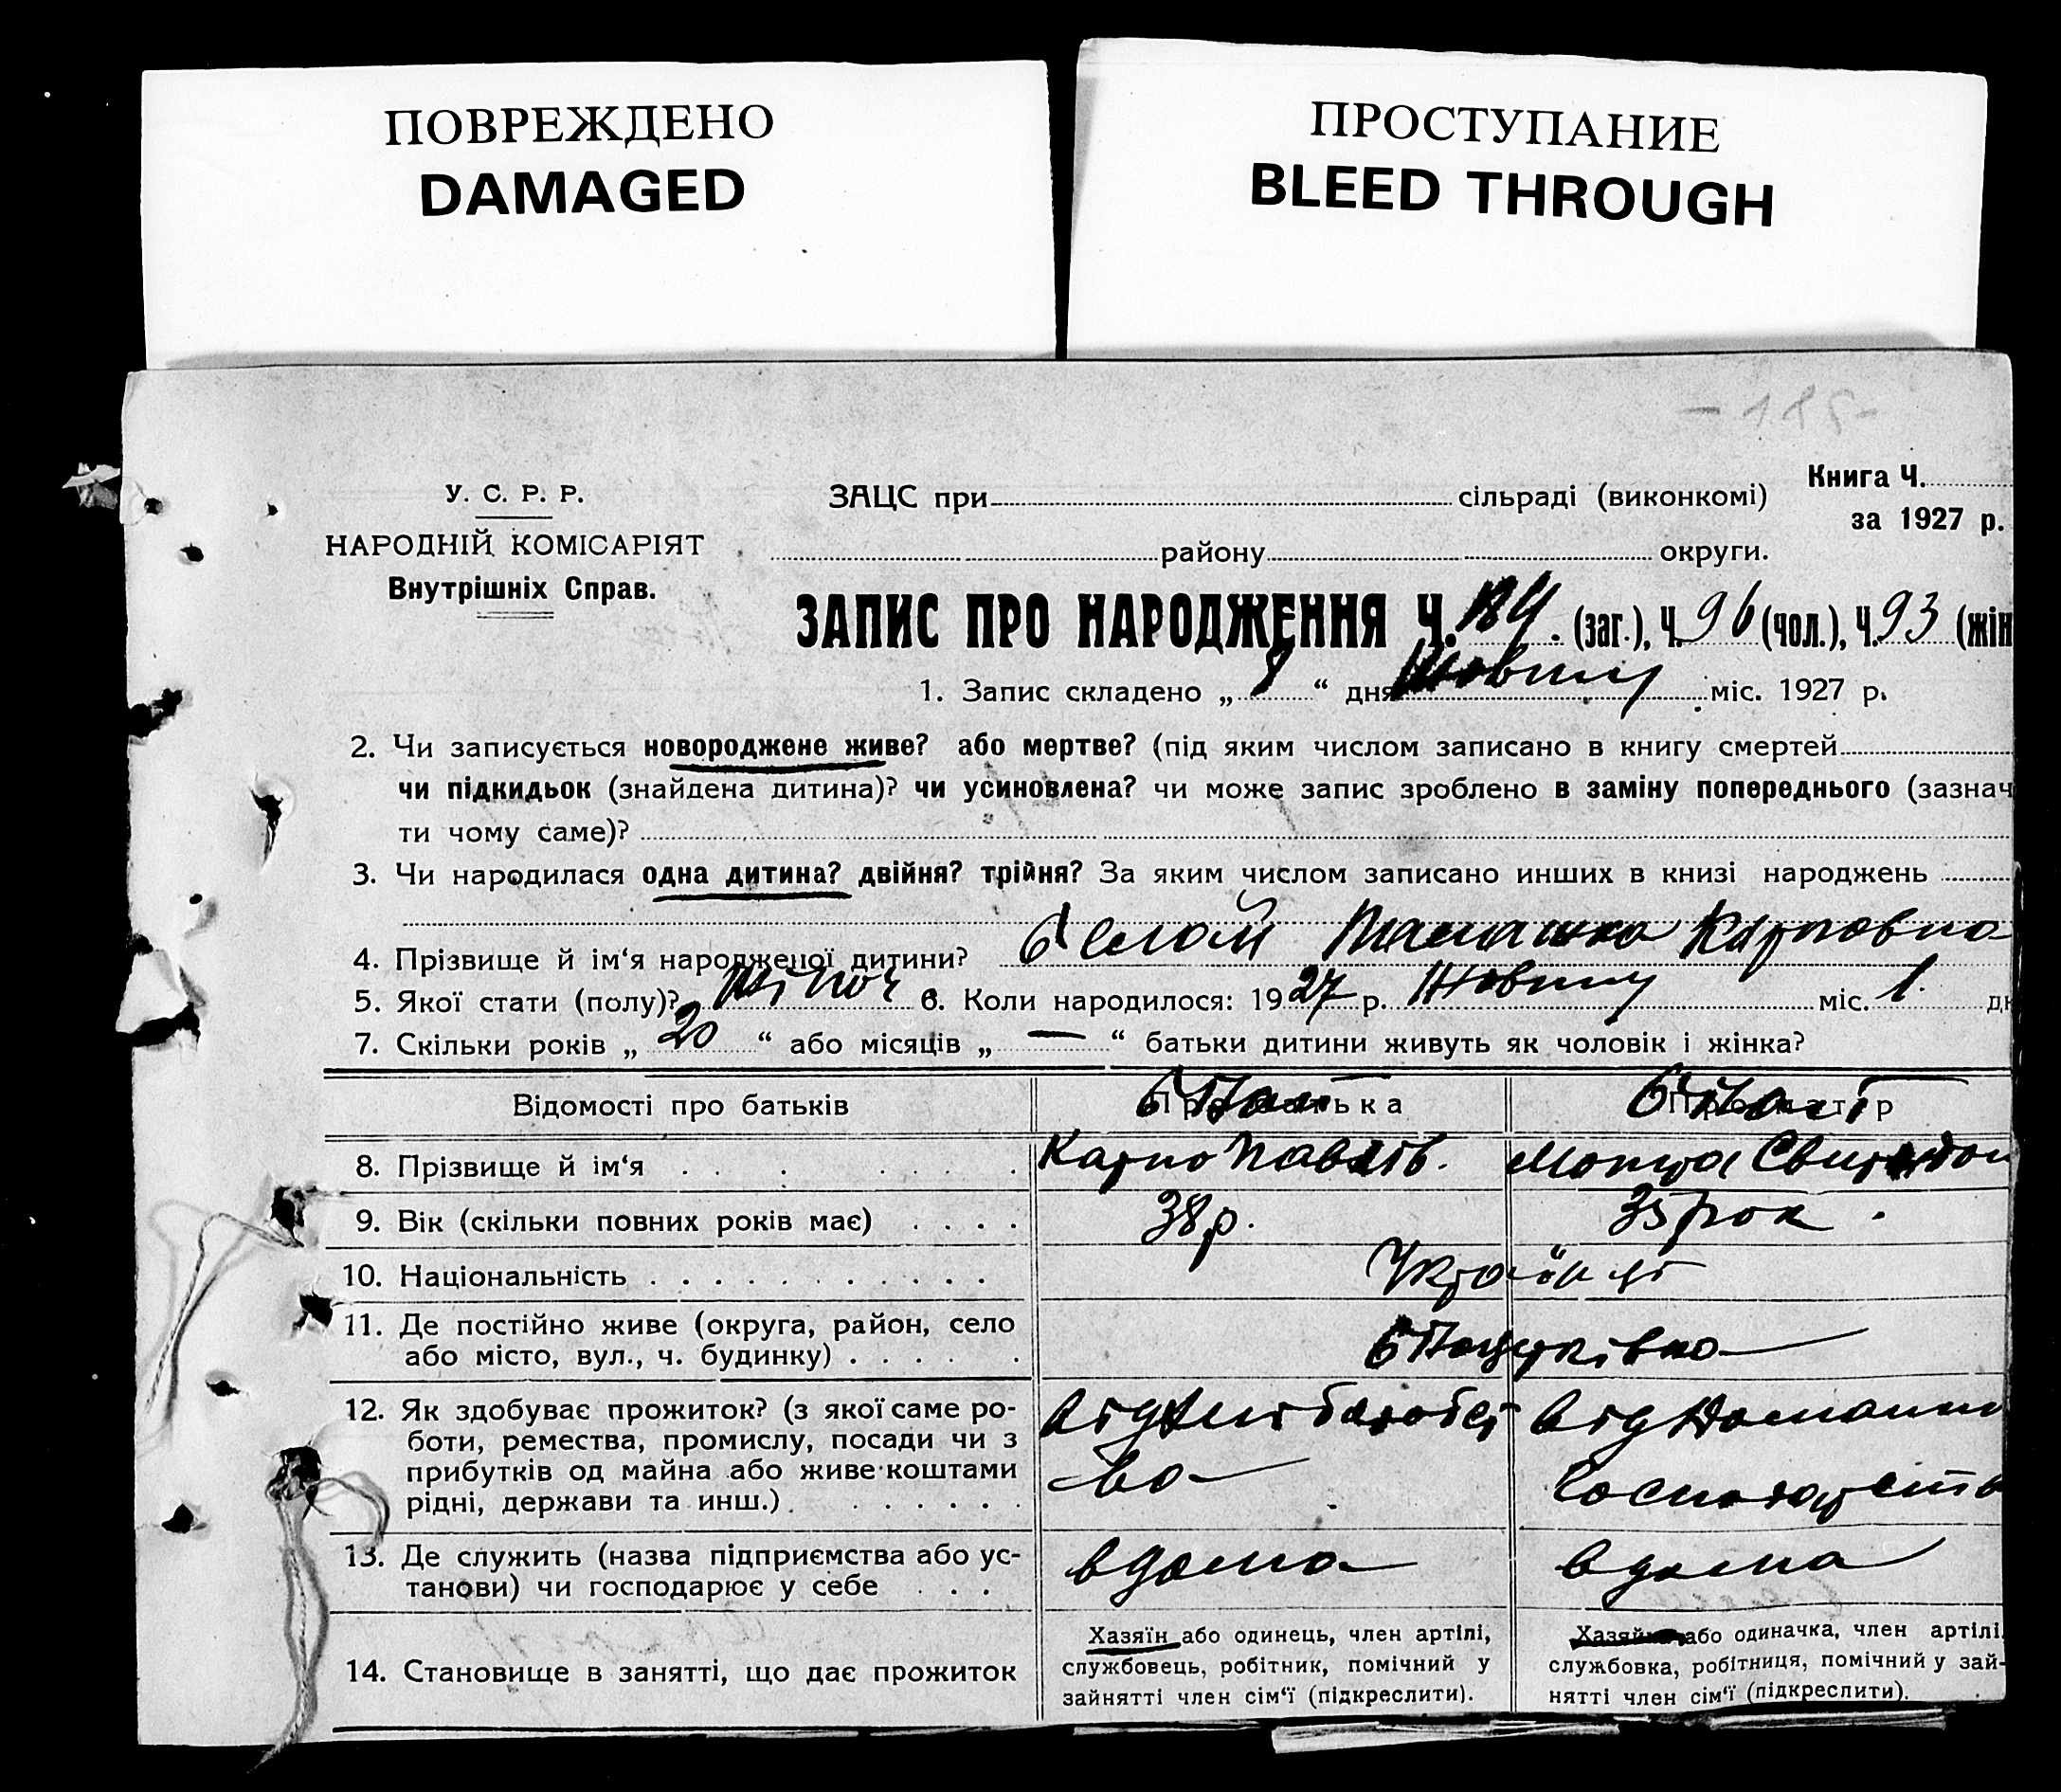 ПОВРЕЖДЕНО
DAMAGED
ПРОСТУПАНИЕ
BLEED THROUGH
У. С. Р. Р.
НАРОДНІЙ КОМІСАРІЯТ
Внутрішніх Справ.
ЗАЦС при сільраді (виконкомі)
Книга Ч.
за 1927 р.
району округи.
ЗАПИС ПРО НАРОДЖЕННЯ Ч. (заг.), Ч. 96 (чол.), Ч. 93 (жін
1. Запис складено „ “ дня міс. 1927 р.
2. Чи записується новороджене живе? або мертве? (під яким числом записано в книгу смертей
чи підкидьок (знайдена дитина)? чи усиновлена? чи може запис зроблено в заміну попереднього (зазнач
ти чому саме)?
3. Чи народилася одна дитина? двійня? трійня? За яким числом записано инших в книзі народжень
4. Прізвище й ім‘я народженої дитини? Карповна
5. Якої стати (полу)? 6. Коли народилося: 1927 р. міс. 1 дн
7. Скільки років „ 20 “ або місяців „ — “ батьки дитини живуть як чоловік і жінка?
Відомості про батьків
Про батька
Про матір
8. Прізвище й ім‘я Карпо
9. Вік (скільки повних років має) 38 р. 35 рок.
10. Національність
11. Де постійно живе (округа, район, село
або місто, вул., ч. будинку)
12. Як здобуває прожиток? (з якої саме ро-
боти, ремества, промислу, посади чи з
прибутків од майна або живе коштами
рідні, держави та инш.)
13. Де служить (назва підприємства або ус-
танови) чи господарює у себе вдома вдома
14. Становище в занятті, що дає прожиток
Хазяїн або одинець, член артілі,
службовець, робітник, помічний у
зайнятті член сім‘ї (підкреслити).
Хазяйка або одиначка, член артілі,
службовка, робітниця, помічний у зай-
нятті член сім‘ї (підкреслити).